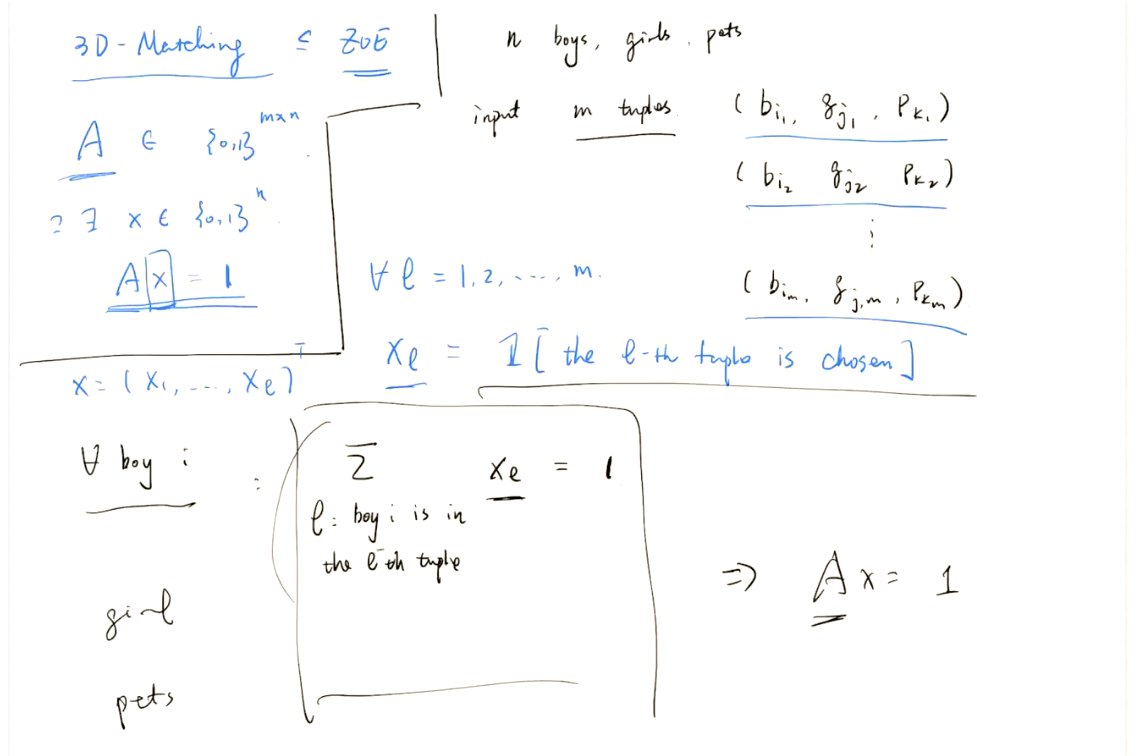 3D-Matching ≤ ZOE
A ∈ {0,1}^{m×n}
? ∃ x ∈ {0,1}^n
A x = 1
n boys, girls, pets
input m tuples
(b_{i_1}, g_{j_1}, p_{k_1})
(b_{i_2} g_{j_2} p_{k_2})
⋮
(b_{i_m}, g_{j,m}, p_{k_m})
∀ ℓ = 1, 2, ..., m.
x_ℓ = 1 [the ℓ-th tuple is chosen]
x = (x_1, ..., x_ℓ)^T
∀ boy i : Σ x_ℓ = 1
ℓ: boy i is in
the ℓ-th tuple
⇒ A x = 1
girl
pets